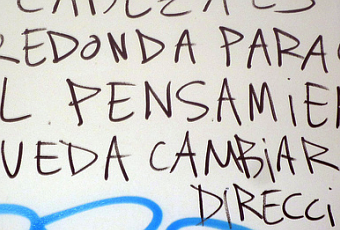 CABEZA ES
REDONDA PARA
L PENSAMIE
UEDA CAMBiAR
DIRECCi